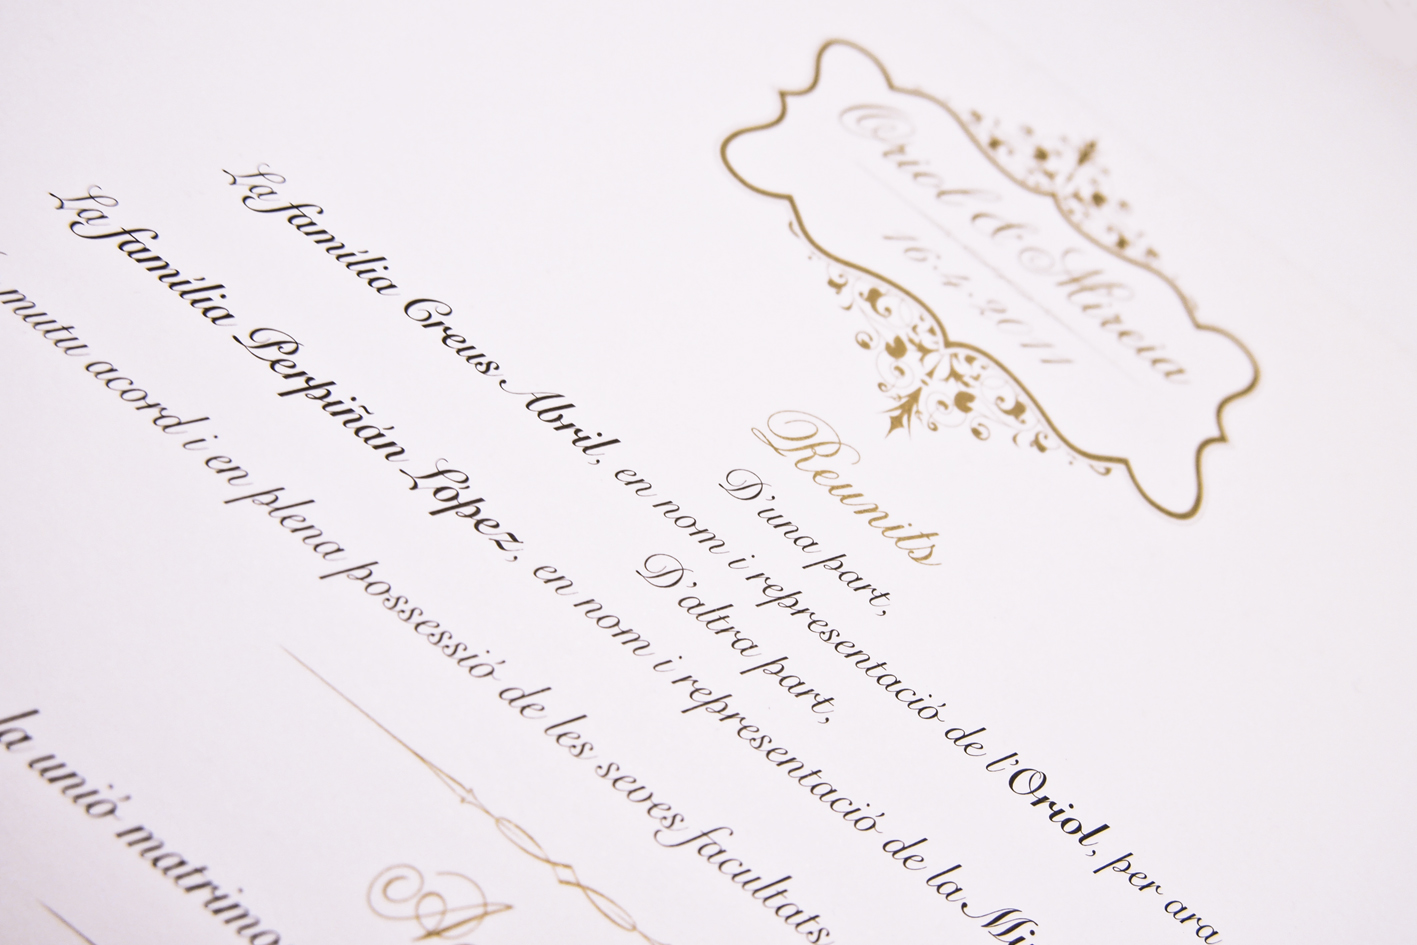 Oriol & Mireia
16·4·2011
Reunits
D'una part,
La família Creus Abril, en nom i representació de l'Oriol, per ara
D'altra part,
La família Perpiñán López, en nom i representació de la Mi
mutu acord i en plena possessió de les seves facultats
A
la unió matrimo